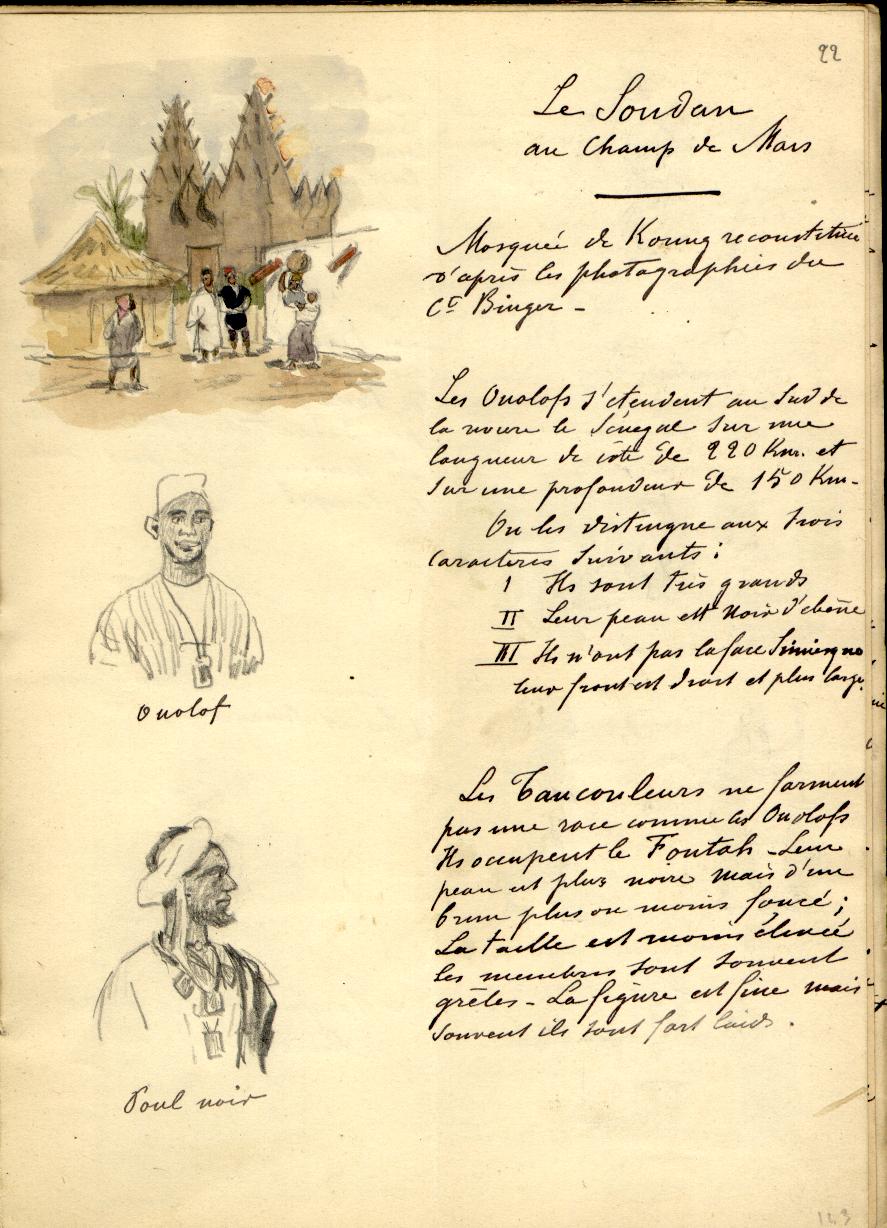 22
Le Soudan
au Champ de Mars
Mosquée de Koung reconstituée
d'après les photographies du
Ct Binger -
Les Ouolofs s'étendent au Sud de
la rivière le Sénégal sur une
longueur de côte de 220 Km. et
sur une profondeur de 150 Km -
On les distingue aux trois
caractères suivants :
I Ils sont très grands
II Leur peau est noir d'ébène
III Ils n'ont pas la face simiesque
leur front est droit et plus large.
Ouolof
Les Toucouleurs ne forment
pas une race comme les Ouolofs
Ils occupent le Foutah - Leur
peau est plus noire mais d'un
brun plus ou moins foncé ;
La taille est moins élancée
les membres sont souvent
grêles - La figure est fine mais
souvent ils sont fort laids .
Poul noir